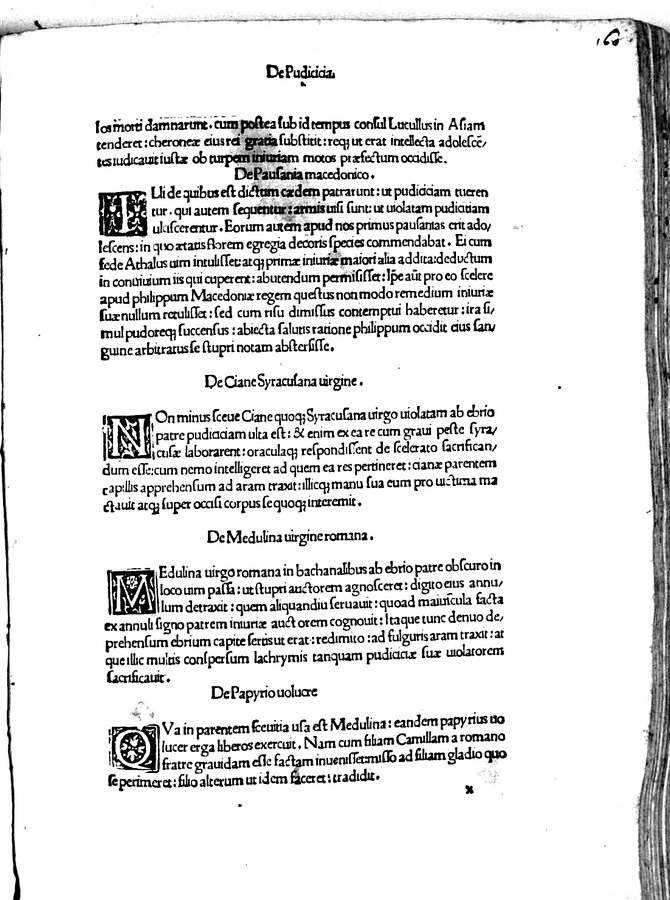 168
De Pudicicia.
los morti damnarunt. cum postea sub id tempus consul Lucullus in Asiam
tenderet: cheroneæ eius rei gratia substitit: reqꝫ ut erat intellecta adolescē/
tes iudicauit iustæ ob turpem iniuriam motos præfectum occidisse.
De Pausania macedonico.
ILli de quibus est dictum cædem patrarunt: ut pudiciciam tueren
tur. qui autem sequentur: armis usi sunt: ut uiolatam pudicitiam
ulciscerentur. Eorum autem apud nos primus pausanias erit ado/
lescens: in quo ætatis florem egregia decoris species commendabat. Ei cum
sede Athalus uim intulisset: atqꝫ primæ iniuriæ maiori alia addita: deductum
in conuiuium iis qui cuperent: abutendum permisisset: Ipē aūt pro eo scelere
apud philippum Macedoniæ regem questus non modo remedium iniuriæ
suæ nullum retulisset: sed cum risu dimissus contemptui haberetur: ira si/
mul pudoreqꝫ succensus: abiecta salutis ratione philippum occidit eius san/
guine arbitratus se stupri notam abstersisse.
De Ciane Syracusana uirgine.
NOn minus sceue Ciane quoqꝫ Syracusana uirgo uiolatam ab ebrio
patre pudiciciam ulta est: & enim ex ea re cum graui peste syra/
cusæ laborarent: oraculaqꝫ respondissent de scelerato sacrifican/
dum esse: cum nemo intelligeret ad quem ea res pertineret: cianæ parentem
capillis apprehensum ad aram traxit: illicqꝫ manu sua eum pro uictima ma
ctauit atqꝫ super occisi corpus se quoqꝫ interemit.
De Medulina uirgine romana.
MEdulina uirgo romana in bachanalibus ab ebrio patre obscuro in
loco uim passa: ut stupri auctorem agnosceret: digito eius annu/
lum detraxit: quem aliquandiu seruauit: quoad maiuscula facta
ex annuli signo patrem iniuriæ auctorem cognouit: Itaque tunc denuo de/
prehensum ebrium capite sertis ut erat: redimito: ad fulguris aram traxit: at
que illic multis conspersum lachrymis tanquam pudiciciæ suæ uiolatorem
sacrificauit.
De Papyrio uolucre
QVa in parentem sceuitia usa est Medulina: eandem papyrius uo
lucer erga liberos exercuit. Nam cum filiam Camillam a romano
fratre grauidam esse factam inuenisset: misso ad filiam gladio quo
se perimeret: filio alterum ut idem faceret: tradidit.
x